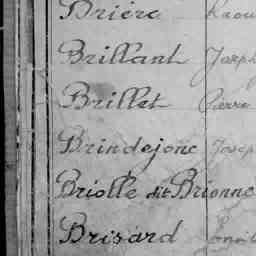 Brière Raou
Brillant Joseph
Brillet Pierre
Brindejonc Josep
Briolle dit Brionne
Brisard